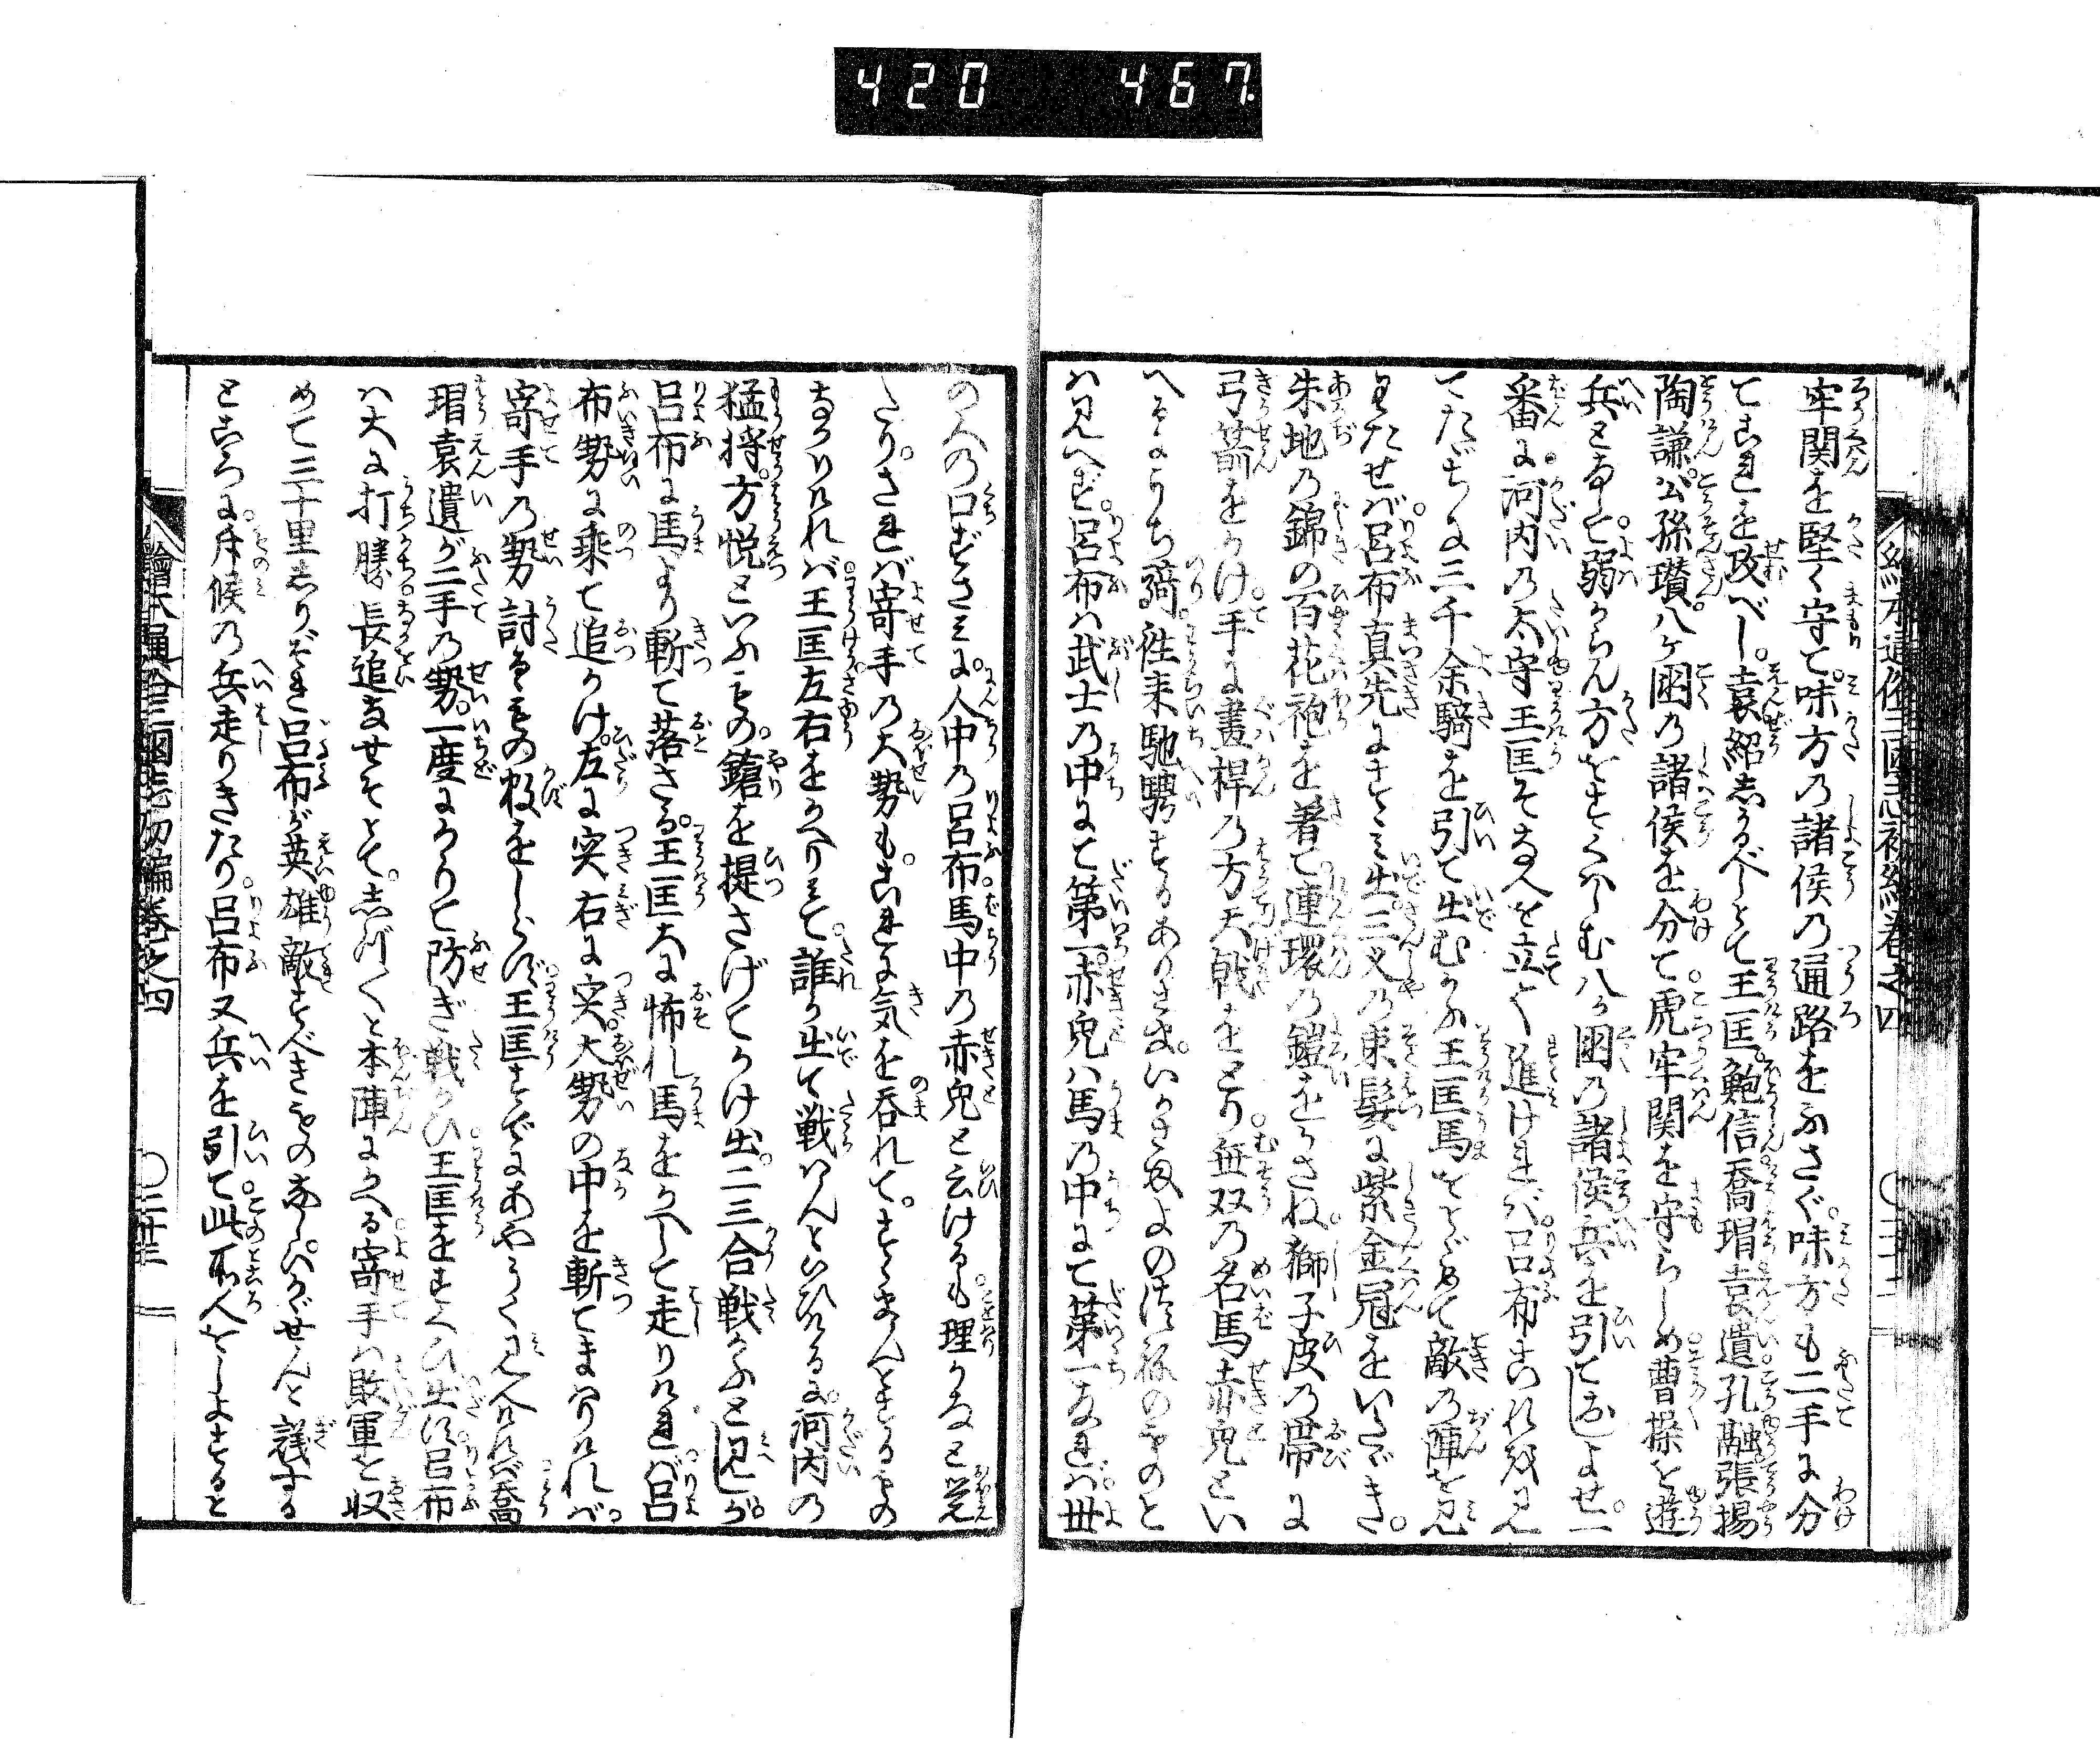 420 467
繪本通俗三國志初編卷之四
牢関を堅く守て。味方の諸侯の通路をふさぐ。味方も二手に分
てこれを攻べし。袁紹しかるべしとて王匡。鮑信喬瑁袁遺孔融張揚
陶謙。公孫瓉。八ケ国の諸侯を分て。虎牢関を守らしめ。曹操を遊
兵となして。弱からん方をすくハしむ八ケ国の諸侯兵を引ておしよせ。一
番に。河内の太守王匡そなへを立て進ければ。呂布これを見
てたゞちに三千余騎を引て出むかふ王匡馬をとゞめて敵の陣を見
わたせバ。呂布真先にすゝミ出。三叉の束髪に紫金冠をいたゞき。
朱地の錦の百花袍を着て。連環の鎧をかさね。獅子皮の帯に
弓箭をかけ。手に畫桿の方天戟をとり。無双の名馬赤兎とい
へるにうち騎。往来馳騁するありさま。いかさまよの法
ハ見へず。呂布ハ武士の中にて第一。赤兎ハ馬の中にて第一なれバ。世
の人の口ずさミに。人中の呂布。馬中の赤兎と云けるも。理りかなと覚
たり。されバ寄手の大勢も。これに気を呑れて。すゝまんとするもの
なかりけれバ。王匡左右をかへりミて。誰か出て戦ハんといひけるに。河内の
猛将。方悦といふもの。鎗を提さげてかけ出。二三合戦かふと見へしが。
呂布に馬より斬て落さる。王匡大に怖れ馬をかへして走りけれバ。呂
布勢に乗て追かけ。左に突右に突。大勢の中を斬てまハりけれバ。
寄手の勢討るもの数をしらず。王匡すでにあやうく見へけれバ。喬
瑁袁遺が二手の勢。一度にかゝりて防ぎ戦かひ。王匡をすくひ出す。呂布
ハ大に打勝。長追なせそとて。しづ〱と本陣にかへる。寄手ハ敗軍を収
めて三十里しりぞき。呂布が英雄敵すべきものなし。いかゞせんと議する
ところに。斥候の兵走りきたり。呂布又兵を引て。此所へをしよすると
繪本通俗三國志初編卷之四